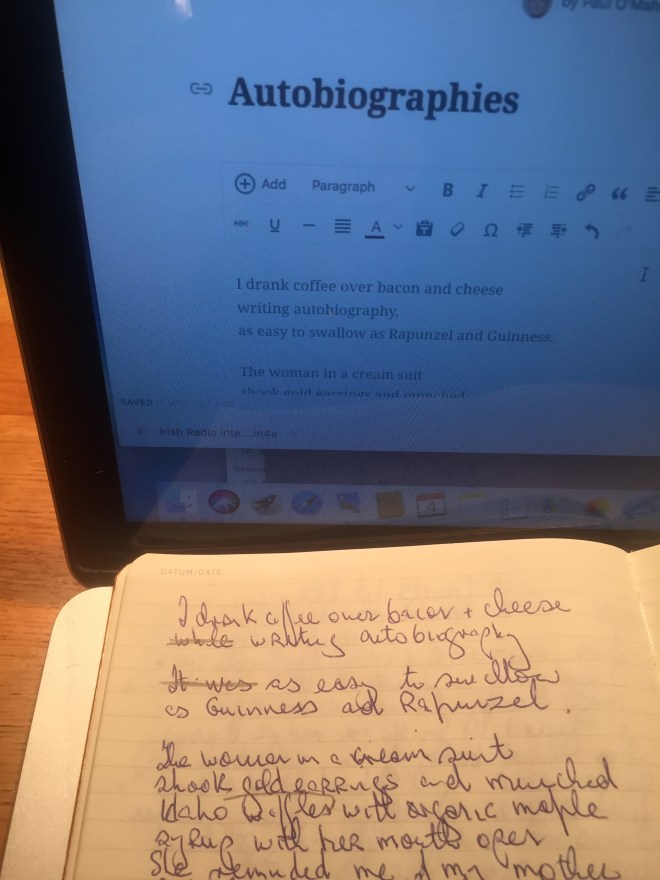 by Paul O'Mah
Autobiographies
Add Paragraph B I
ABC U A Ω
I drank coffee over bacon and cheese
writing autobiography,
as easy to swallow as Rapunzel and Guinness.
The woman in a cream suit
shook gold earrings and munched
SAVED
Irish Radio Inte....m4a
4
DATUM/DATE
I drank coffee over bacon + cheese
while writing autobiography
It was as easy to swallow
as Guinness and Rapunzel.
The woman in a cream suit
shook gold earrings and munched
Idaho waffles with organic maple
syrup with her mouth open
She reminded me of my mother